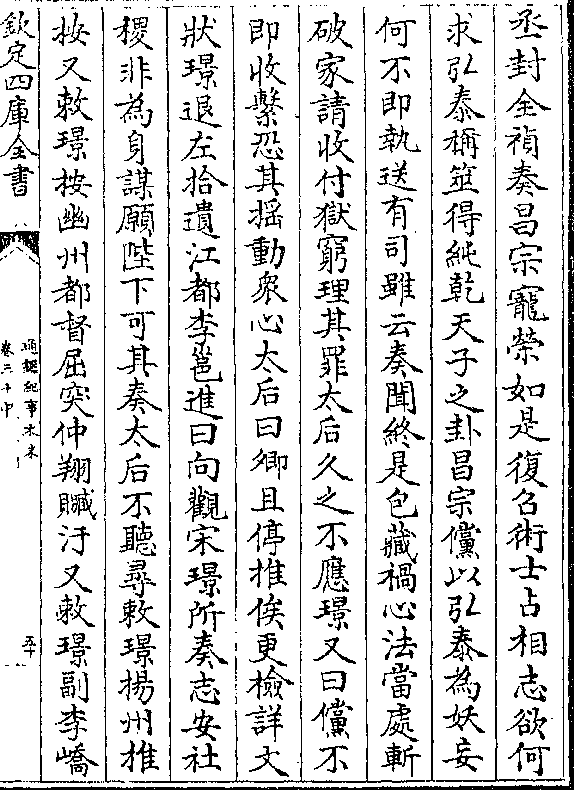 丞封全禎奏昌宗寵榮如是復召術士占相志欲何
求弘泰稱筮得純乾天子之卦昌宗儻以弘泰為妖妄
何不即執送有司雖云奏聞終是包藏禍心法當處斬
破家請收付獄窮理其罪太后久之不應璟又曰儻不
即收繫恐其揺動衆心太后曰卿且停推俟更檢詳文
狀璟退左拾遺江都李邕進曰向觀宋璟所奏志安社
稷非為身謀願陛下可其奏太后不聽尋敕璟揚州推
按又敕璟按幽州都督屈突仲翔贓汙又敕璟副李嶠
欽定四庫全書
通鑑紀事本末
卷三十中
五十